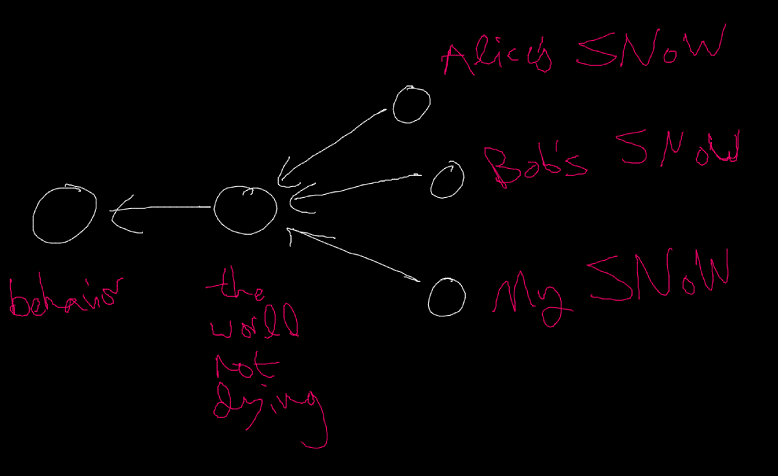 Alice's SNoW
Bob's SNoW
My SNoW
behavior
the
world
not
dying